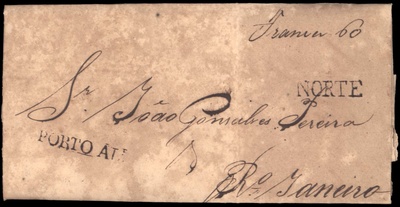 Franca 60
NORTE
Sr. João Gonsalves Pereira
PORTO AL
Rº Janeiro